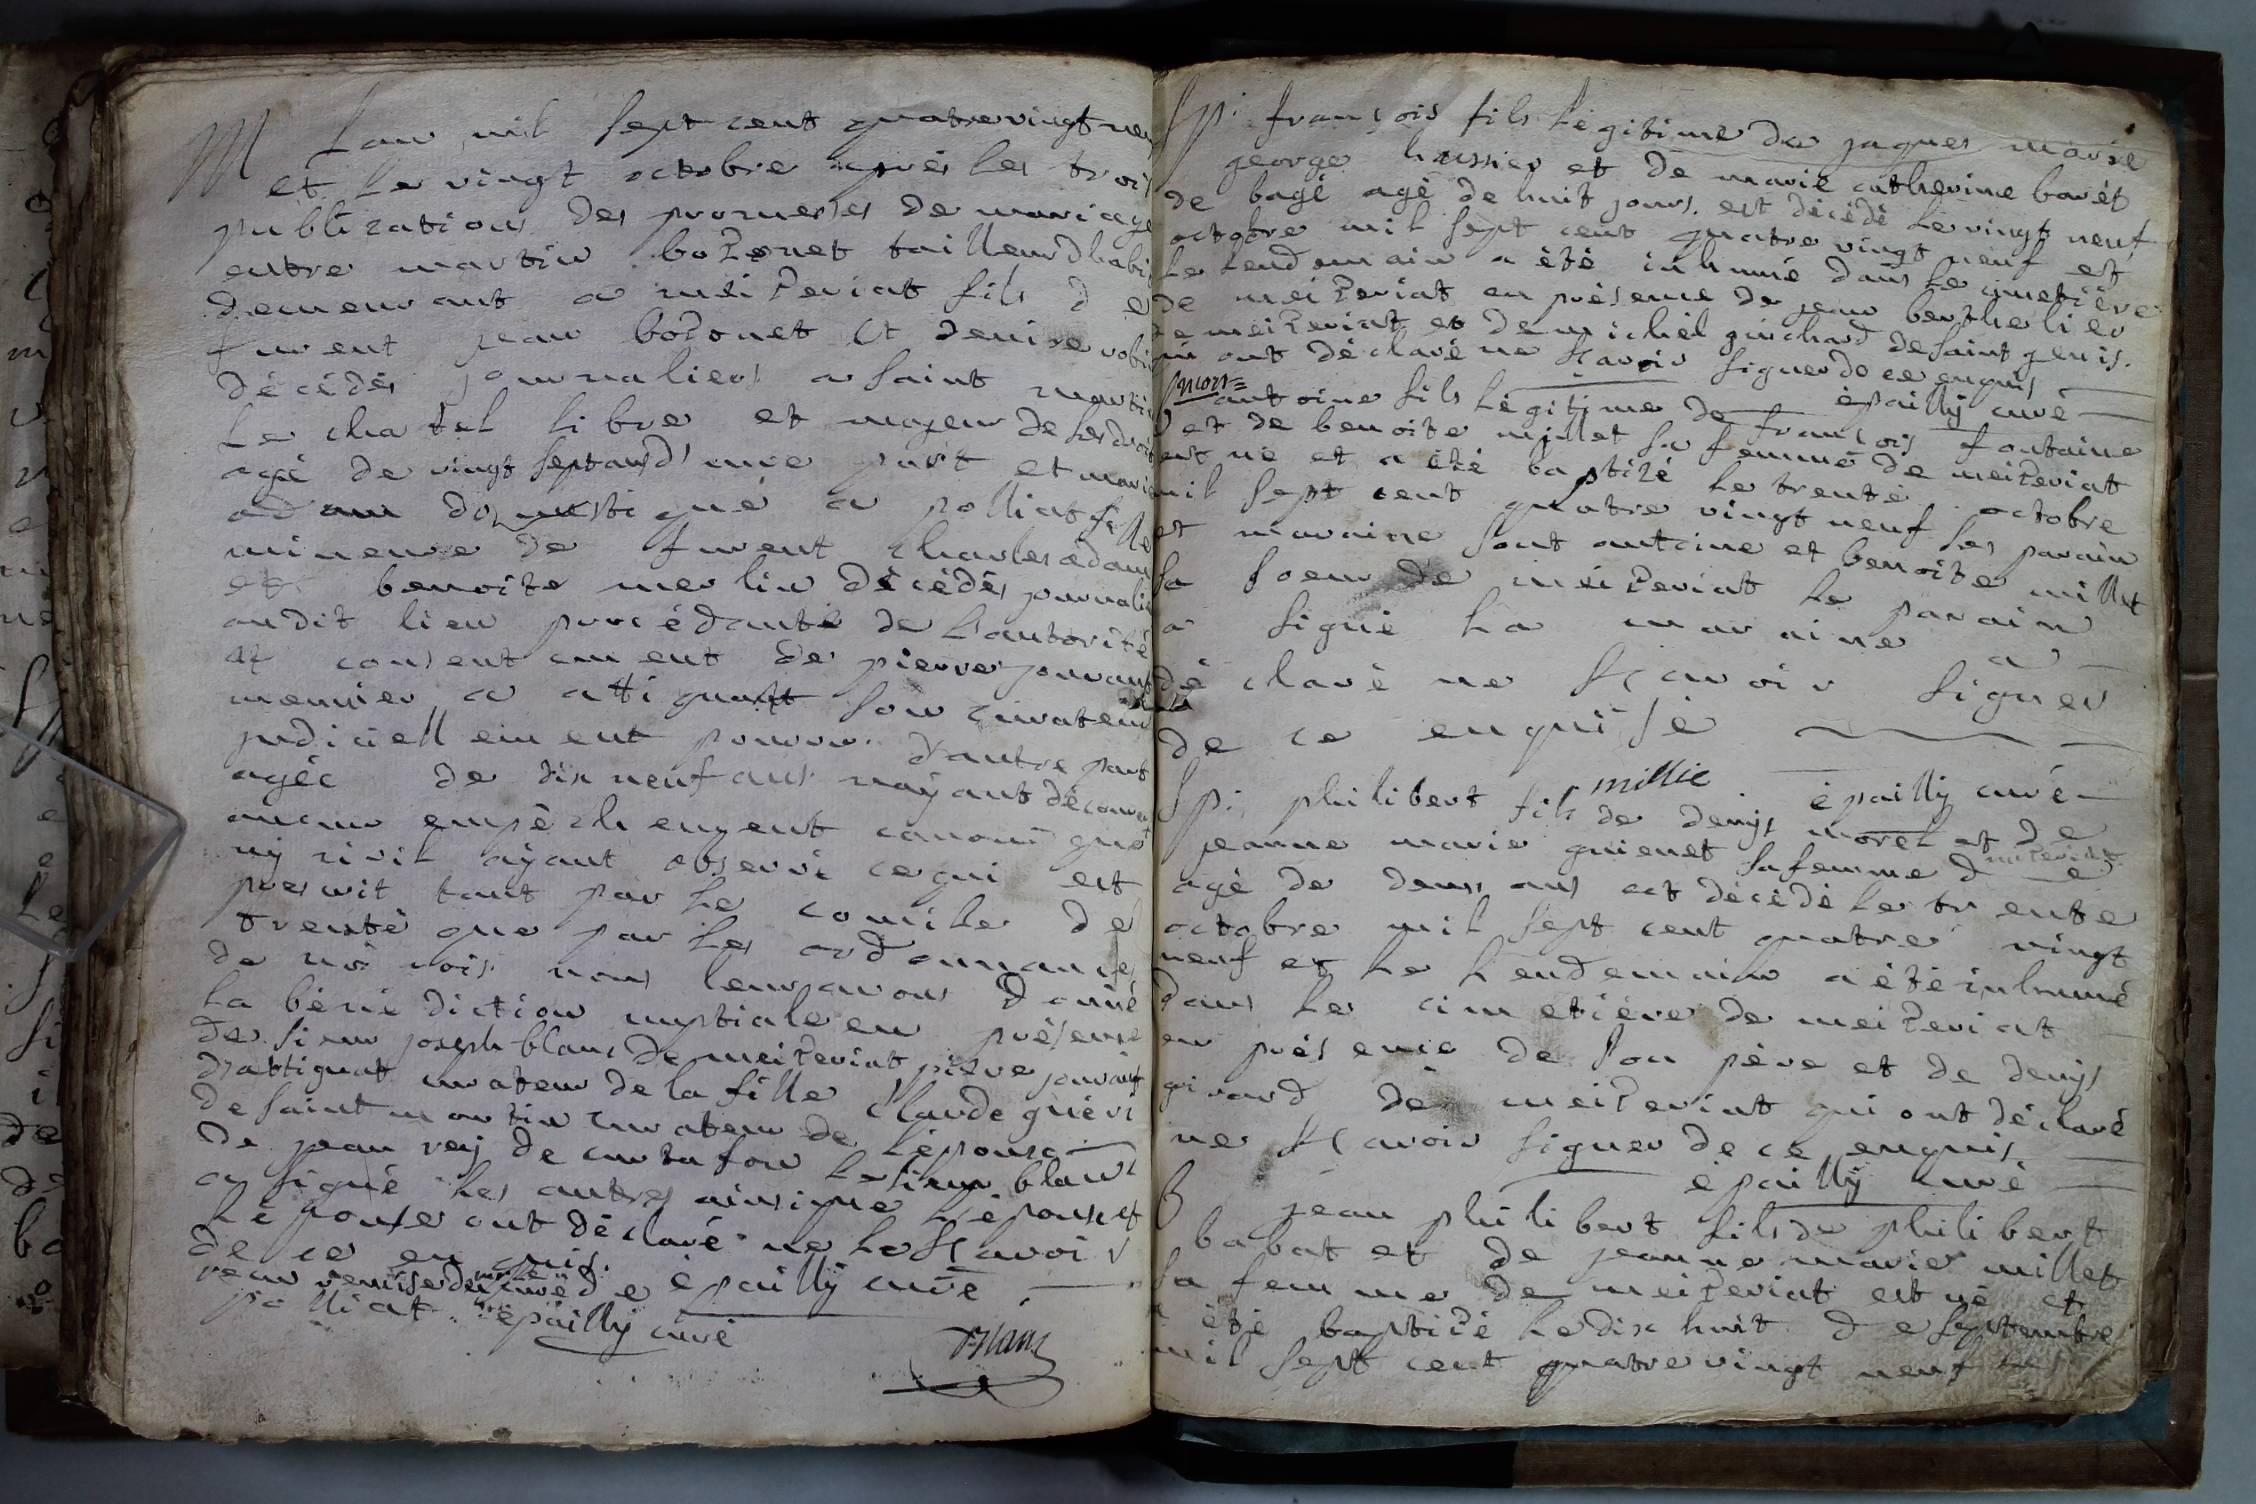 M Lan mil sept cent quatrevingt neu
et le vingt octobre aprés les trois
publications des promesses de mariage
entre martin botonet tailleur dhabi
demeurant a meizeriat fils de
furent jean botonet et denise robin
décédés journaliers a saint martin
le chatel libre et majeur de ses droits
agé de vingt sept ans d'une part et marie
adam domestique a polliat fille
mineure de furent charles adam
et benoite merlin décédés journaliers
audit lieu procédante de l'autorité
et consentement de pierre jouvant
meusnier a attignat son curateur
judiciellement pourvu d'autre part
agée de dix neuf ans nayant découvert
aucun empêchement canonique
nÿ civil aÿant observé cequi est
prescrit tant par le concile de
trente que par les ordonnances
de nos rois nous leur avons donné
la bénédiction nuptiale en présence
de sieur joseph blanc de meizeriat piere jouvant
dattignat curateur de la fille claude guéri
de saint martin curateur de l'épouse
de jean rey de curtafon le sieur blanc
a signé les autres ainsique l'épouse et
l'époux ont déclaré ne le scavoir
de ce enquis. épaillÿ curé
veu remise de mr le curé de
polliat épaillÿ curé
Blanc
Spi françois fils légitime de jaques marie
george et de marie catherine barét
de bagé agé de huit jours est décédé le vingt neuf
octobre mil sept cent quatre vingt neuf et
le lendomain a été inhumé dans le cimetiére
de meizeriat en présence de jean berthelier
de meizeriat et de michel guichard de saint genis.
qui ont déclaré ne scavoir signer de ce enquis
épaillÿ curé
antoine fils légitime de françois fontaine
et de benoite millet sa femme de meizeriat
est né et a été baptizé le trente octobre
mil sept cent quatre vingt neuf ses parain
et maraine sont antoine et benoite millet
sa soeur de meizeriat le parain
a signé la maraine a
déclaré ne scavoir signer
de ce enquise
millie épaillÿ curé
Spi philibert fils de denÿs morel et de
jeanne marie guienet sa femme de meizeriat
agé de deux ans est décédé le trente
octobre mil sept cent quatre vingt
neuf et le lendemain a été inhumé
dans le cimetiére de meizeriat
en présence de son pére et de denÿs
girard de meizeriat qui ont déclaré
ne scavoir signer de ce enquis
épaillÿ curé
B jean philibert fils de philibert
babat et de jeanne marie millet
sa femme de meizeriat est né et
a été baptizé le dix huit de septembre
mil sept cent quatre vingt neuf ses